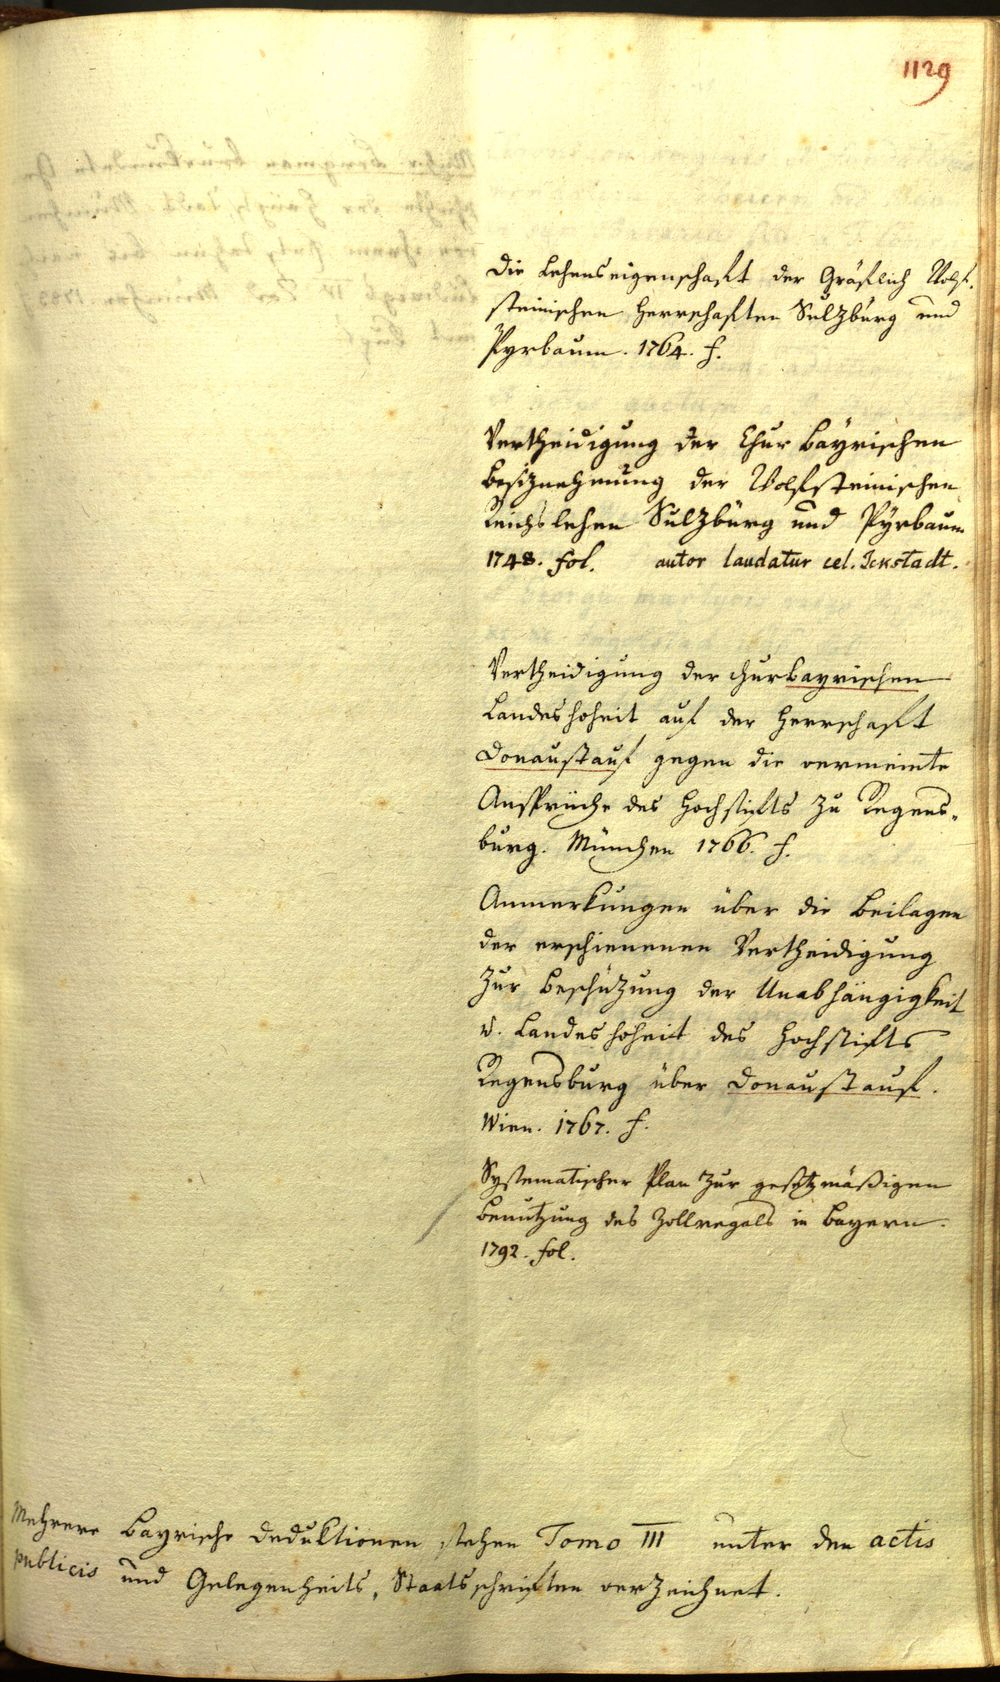 1129
Die Lehenseigenschaft der Gräflich Wolf-
steinischen Herrschaften Sulzbürg und
Pyrbaum. 1764. f.
Vertheidigung der Chur Bayrischen
Besiznehmung der Wolfsteinischen
Reichslehen Sulzbürg und Pyrbaum
1748. fol. autor laudatur cel. Ickstadt.
Vertheidigung der churbayrischen
Landeshoheit auf der Herrschaft
Donaustauf gegen die vermeinte
Ansprüche des Hochstifts zu Regens-
burg. München 1766. f.
Anmerkungen über die Beilagen
der erschienenen Vertheidigung
zur Beschüzung der Unabhängigkeit
u. Landeshoheit des Hochstifts
Regensburg über Donaustauf.
Wien. 1767. f.
Systematischer Plan zur gesetzmäßigen
Benutzung des Zollregals in Bayern.
1792. fol.
Mehrere Bayrische Deduktionen stehen Tomo III unter den actis
publicis und Gelegenheits, Staatsschriften verzeichnet.